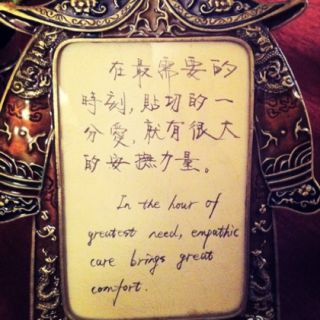 在最需要的
時刻,貼切的一
分愛,就有很大
的安撫力量。
In the hour of
greatest need, empathic
care brings great
comfort.